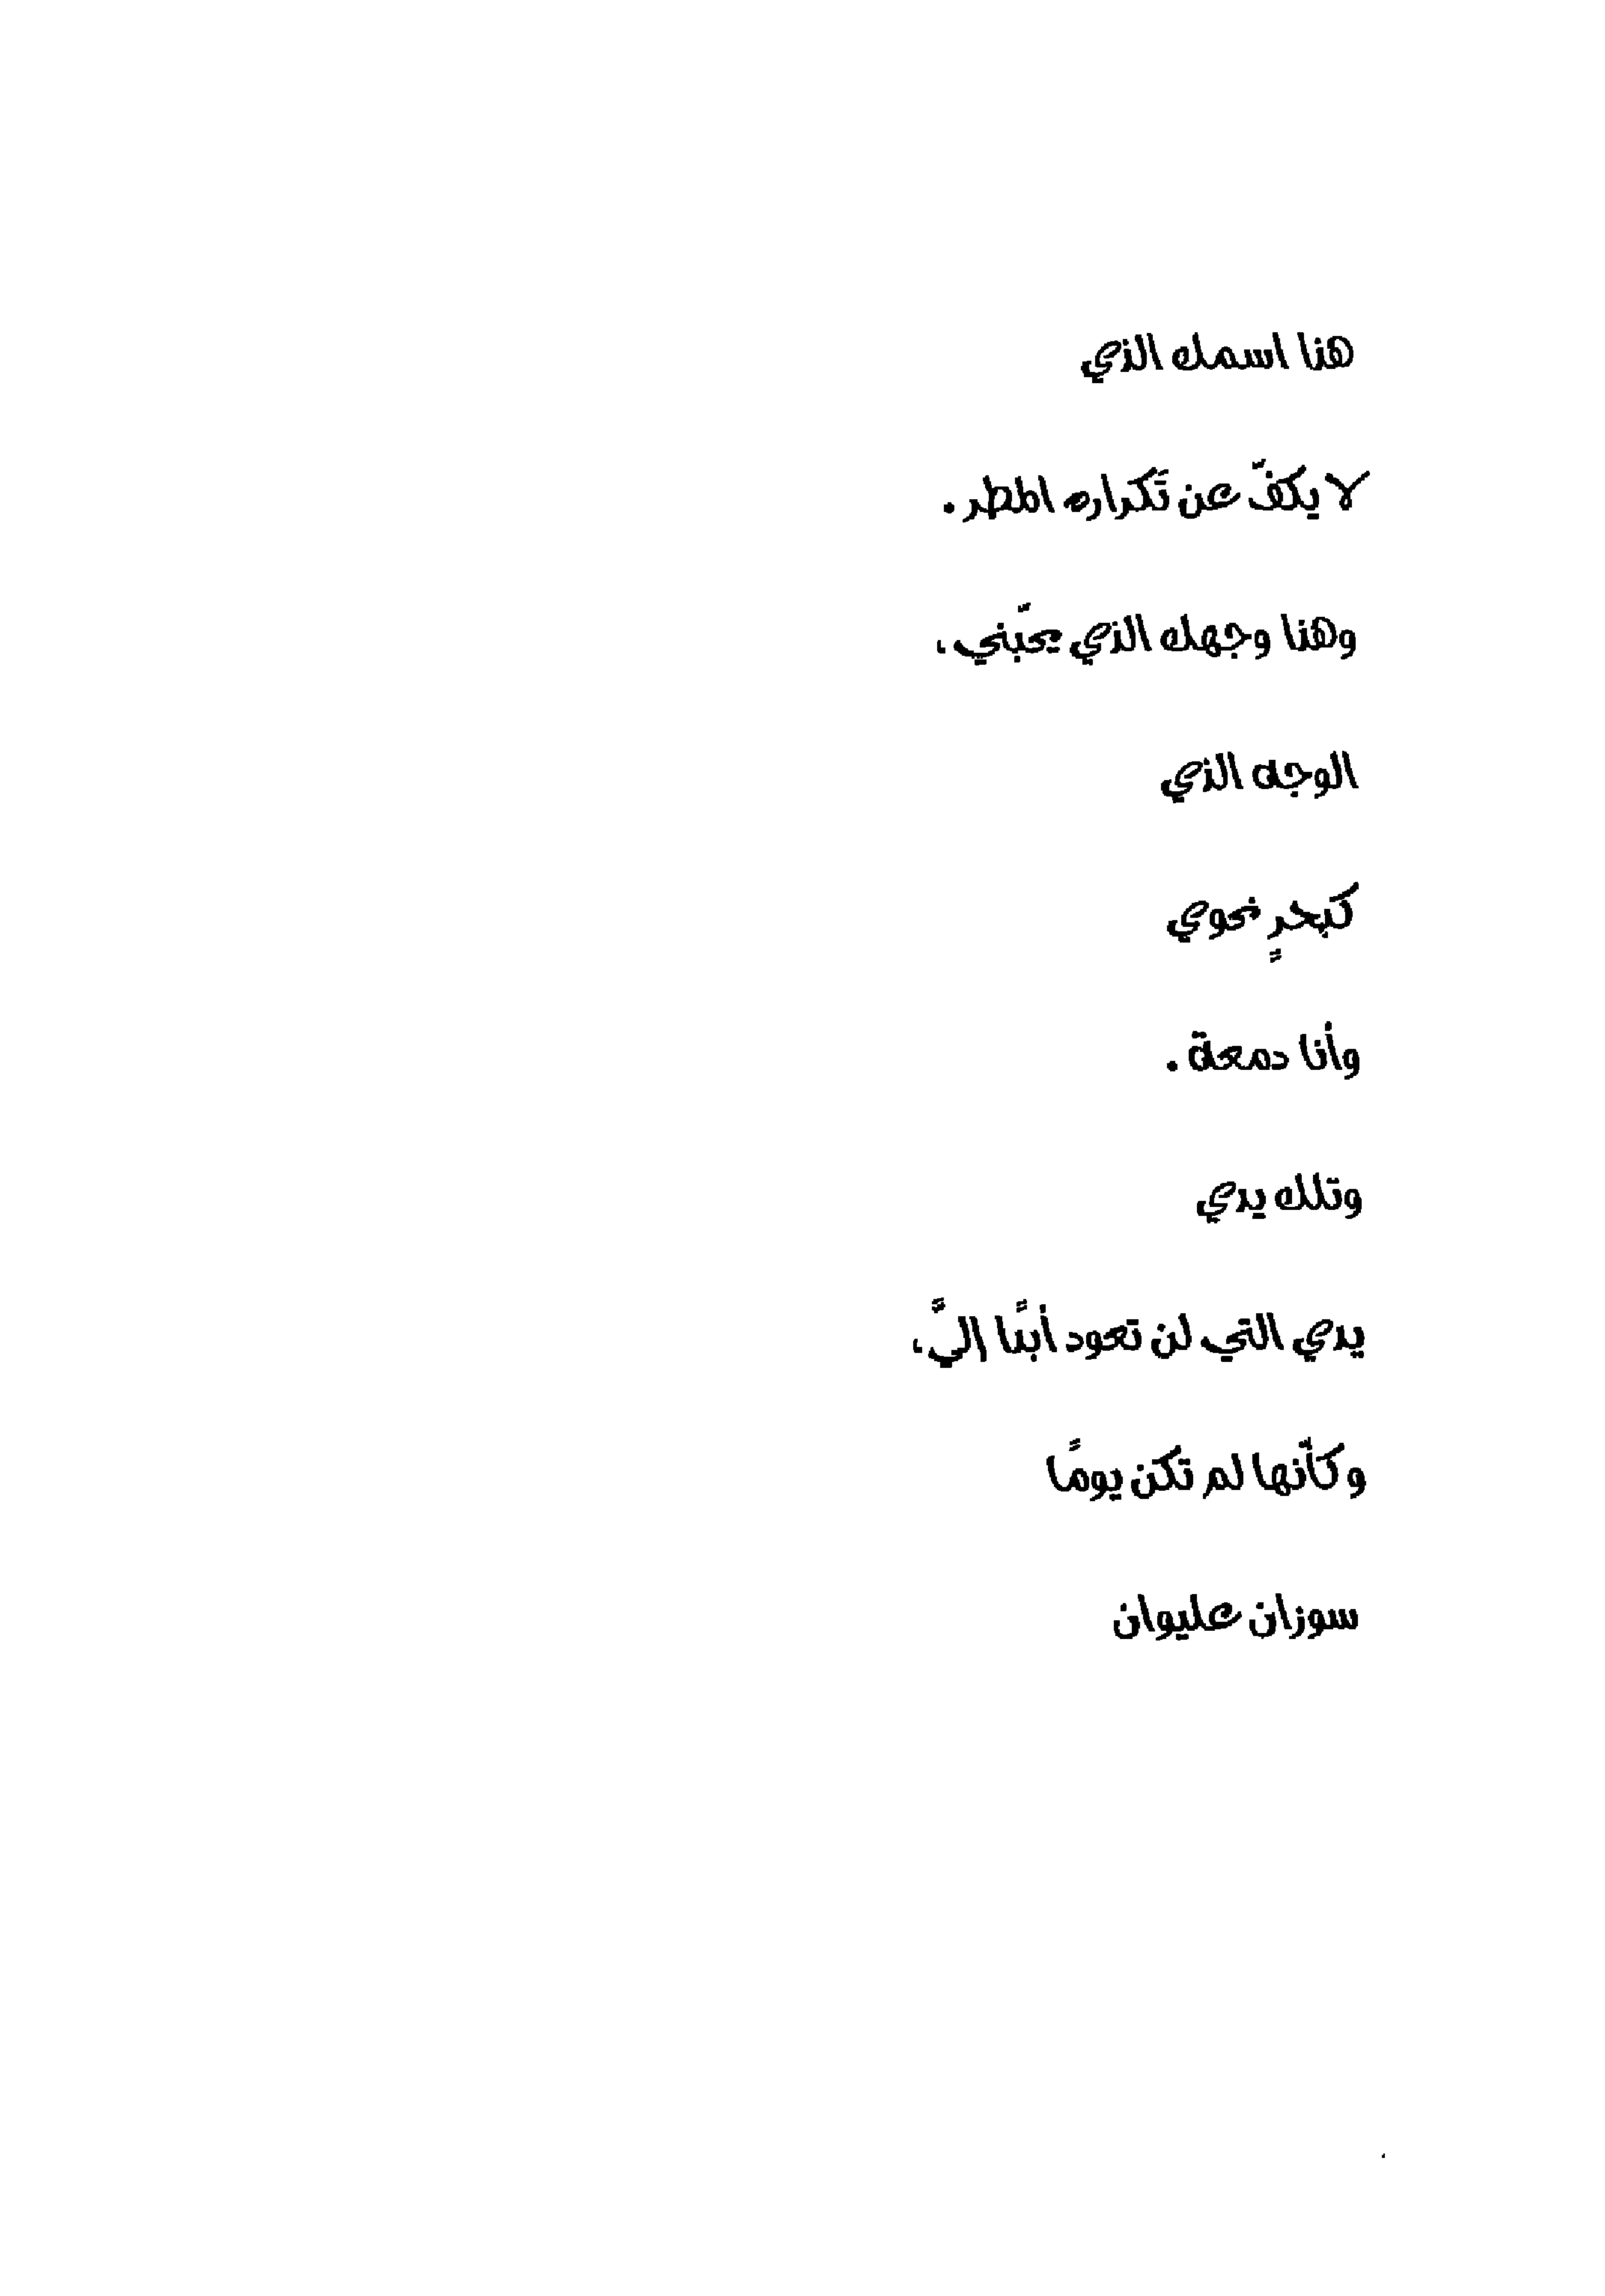 هذا اسمك الذي
لا يكفّ عن تكراره المطر.
وهذا وجهك الذي يحبّني،
الوجه الذي
كبحرٍ نحوي
وأنا دمعة.
وتلك يدي
يدي التي لن تعود أبدًا إليَّ،
وكأنّها لم تكن يومًا
سوزان عليوان